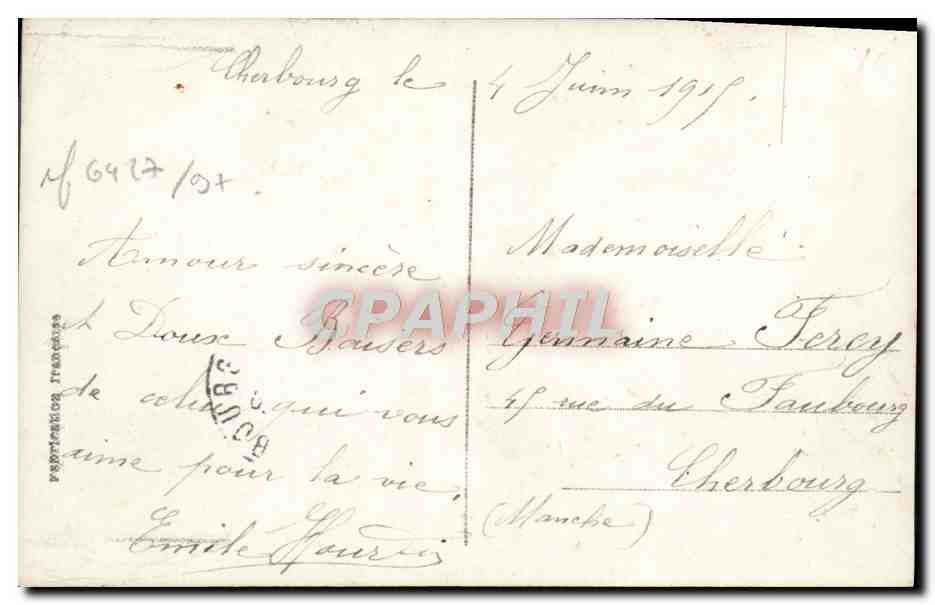 Cherbourg le 4 Juin 1915.
ref 6427/97.
Amour sincère
et Doux Baisers
de celui qui vous
aime pour la vie.
Emile
Mademoiselle
Germaine Fercy
45 rue du Faubourg
Cherbourg
(Manche)
Fabrication française
CPAPHIL